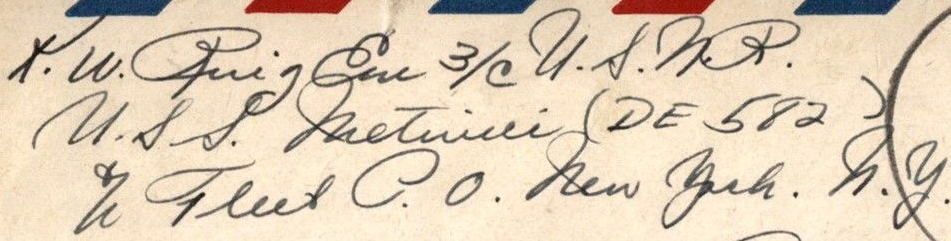 K. W. Ruig Em 3/c U.S.N.R.
U.S.S. Metivier (DE 582)
℅ Fleet P.O. New York. N.Y.